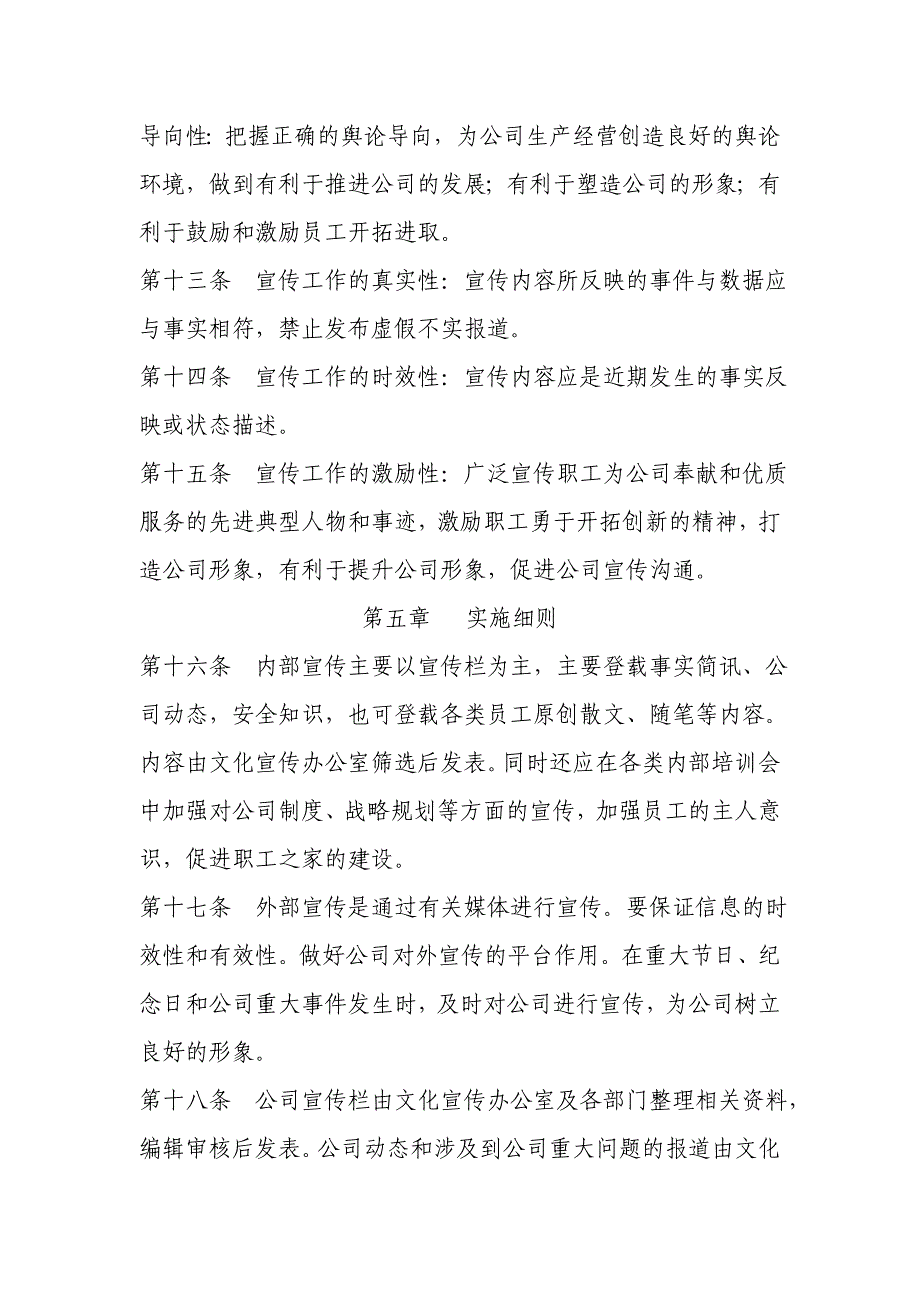 导向性：把握正确的舆论导向，为公司生产经营创造良好的舆论
环境，做到有利于推进公司的发展；有利于塑造公司的形象；有
利于鼓励和激励员工开拓进取。
第十三条　宣传工作的真实性：宣传内容所反映的事件与数据应
与事实相符，禁止发布虚假不实报道。
第十四条　宣传工作的时效性：宣传内容应是近期发生的事实反
映或状态描述。
第十五条　宣传工作的激励性：广泛宣传职工为公司奉献和优质
服务的先进典型人物和事迹，激励职工勇于开拓创新的精神，打
造公司形象，有利于提升公司形象，促进公司宣传沟通。
第五章　实施细则
第十六条　内部宣传主要以宣传栏为主，主要登载事实简讯、公
司动态，安全知识，也可登载各类员工原创散文、随笔等内容。
内容由文化宣传办公室筛选后发表。同时还应在各类内部培训会
中加强对公司制度、战略规划等方面的宣传，加强员工的主人意
识，促进职工之家的建设。
第十七条　外部宣传是通过有关媒体进行宣传。要保证信息的时
效性和有效性。做好公司对外宣传的平台作用。在重大节日、纪
念日和公司重大事件发生时，及时对公司进行宣传，为公司树立
良好的形象。
第十八条　公司宣传栏由文化宣传办公室及各部门整理相关资料，
编辑审核后发表。公司动态和涉及到公司重大问题的报道由文化